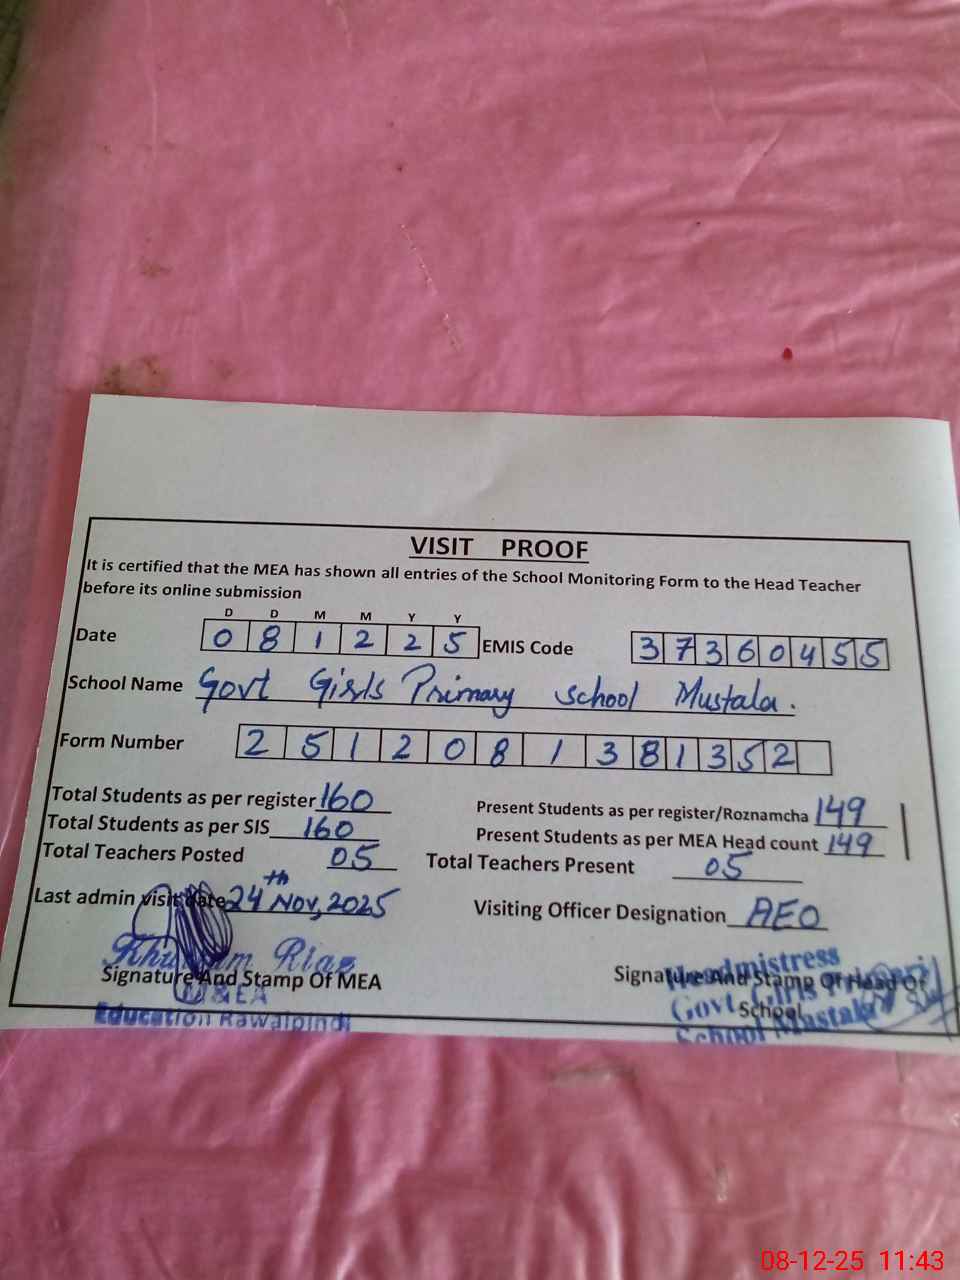 VISIT PROOF
It is certified that the MEA has shown all entries of the School Monitoring Form to the Head Teacher
before its online submission
D D M M Y Y
Date 0 8 1 2 2 5 EMIS Code 3 7 3 6 0 4 5 5
School Name Govt Girls Primary school Mustala.
Form Number 2 5 1 2 0 8 1 3 8 1 3 5 2
Total Students as per register 160 Present Students as per register/Roznamcha 149
Total Students as per SIS 160 Present Students as per MEA Head count 149
Total Teachers Posted 05 Total Teachers Present 05
Last admin visit date 24th Nov, 2025 Visiting Officer Designation AEO
Riaz Headmistress
Signature And Stamp Of MEA Signature And Stamp Of Head Of
School
M&EA Govt Girls
Education Rawalpindi School Mustala
08-12-25 11:43